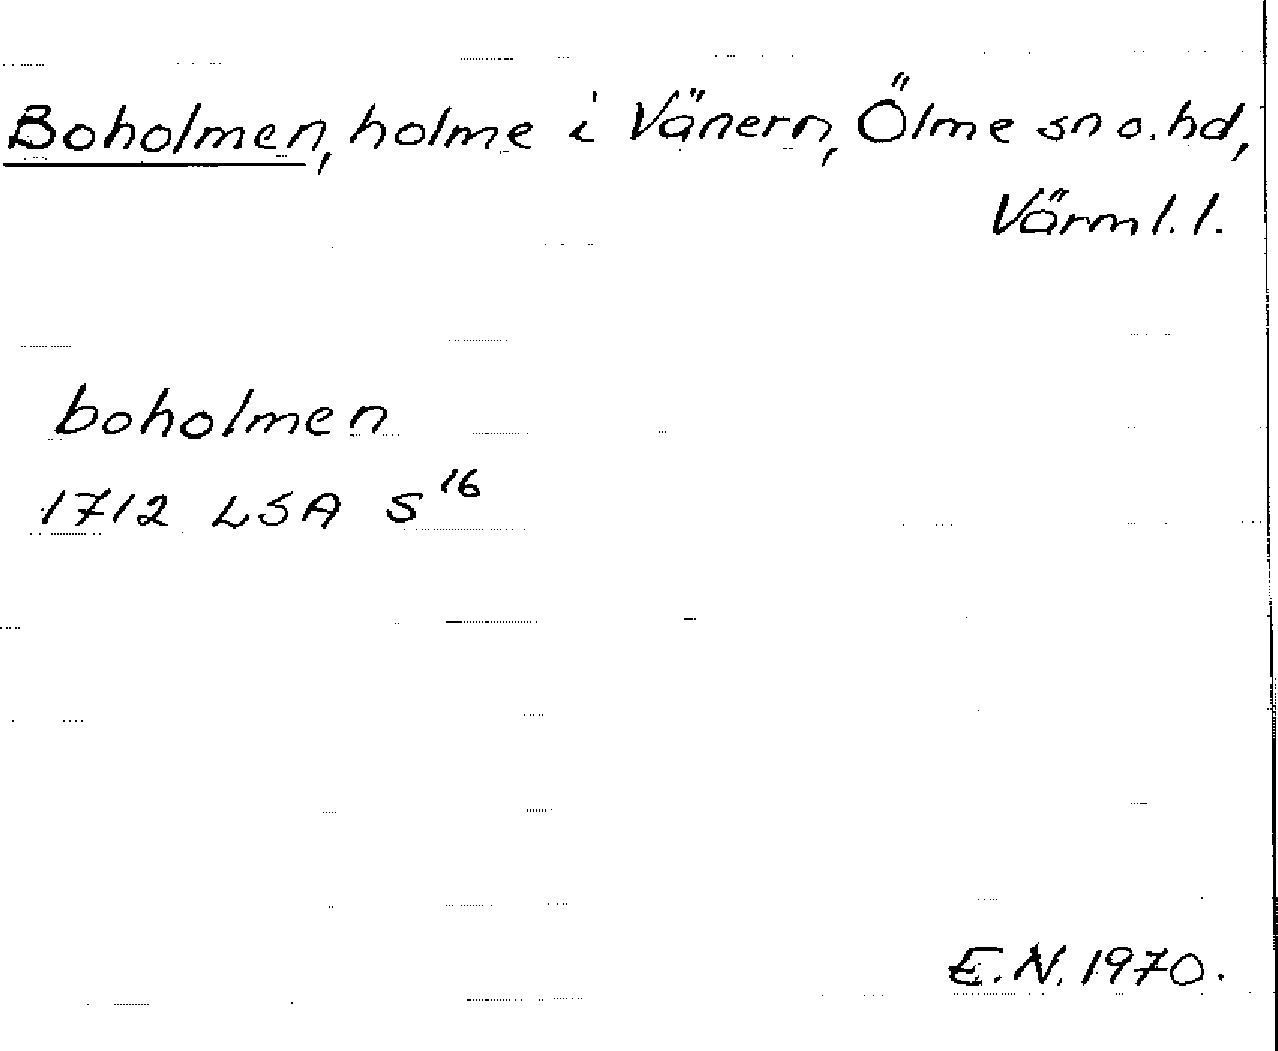 Boholmen, holme i Vänern, Ölme sn o. hd,
Värml. l.
boholmen
1712 LSA S 16
E.N. 1970.